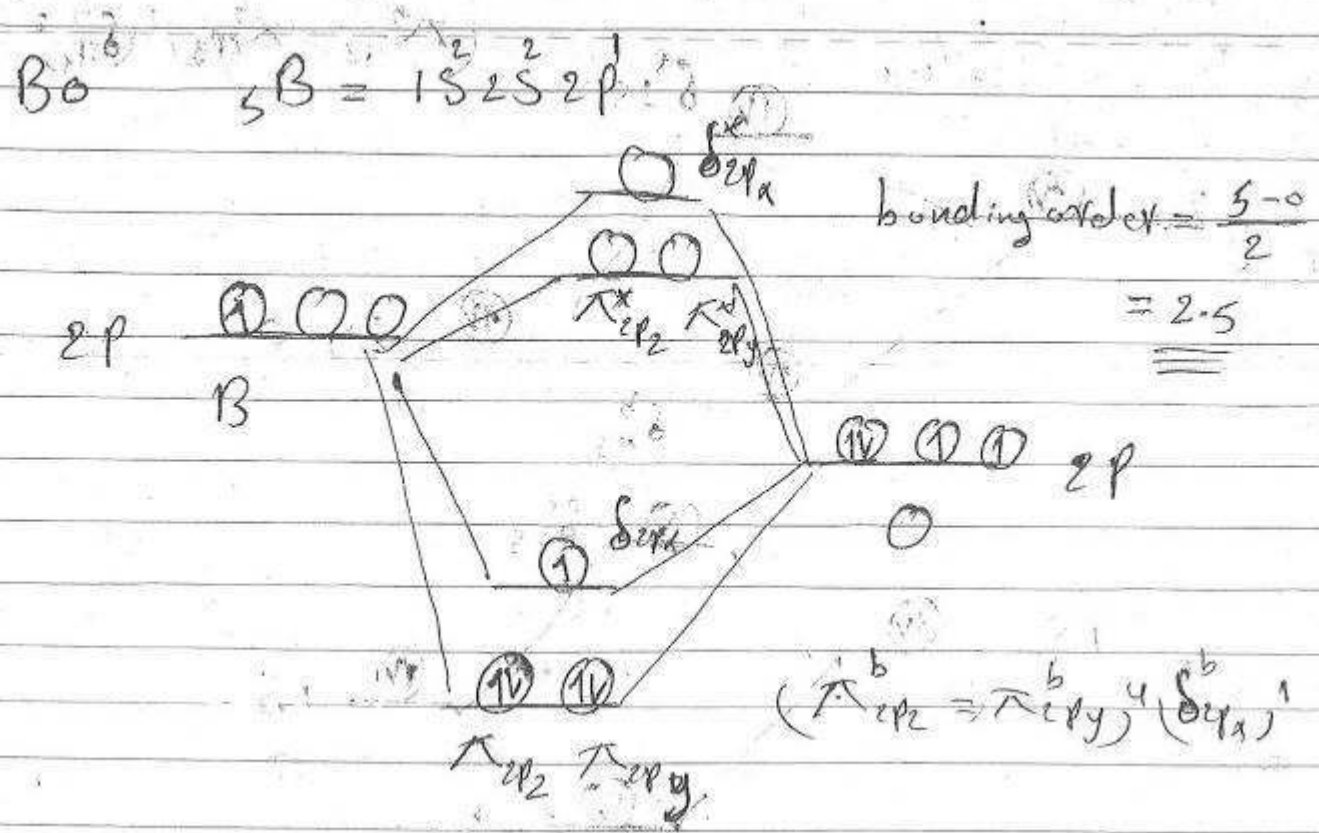 BO ₅B = 1S² 2S² 2P¹
δ*2Px
bonding order = 5-0/2
= 2.5
π*2Pz π*2Py
2P
B
2P
O
δ2Px
(π^b 2Pz = π^b 2Py)⁴ (δ^b 2Px)¹
π2Pz π2Py